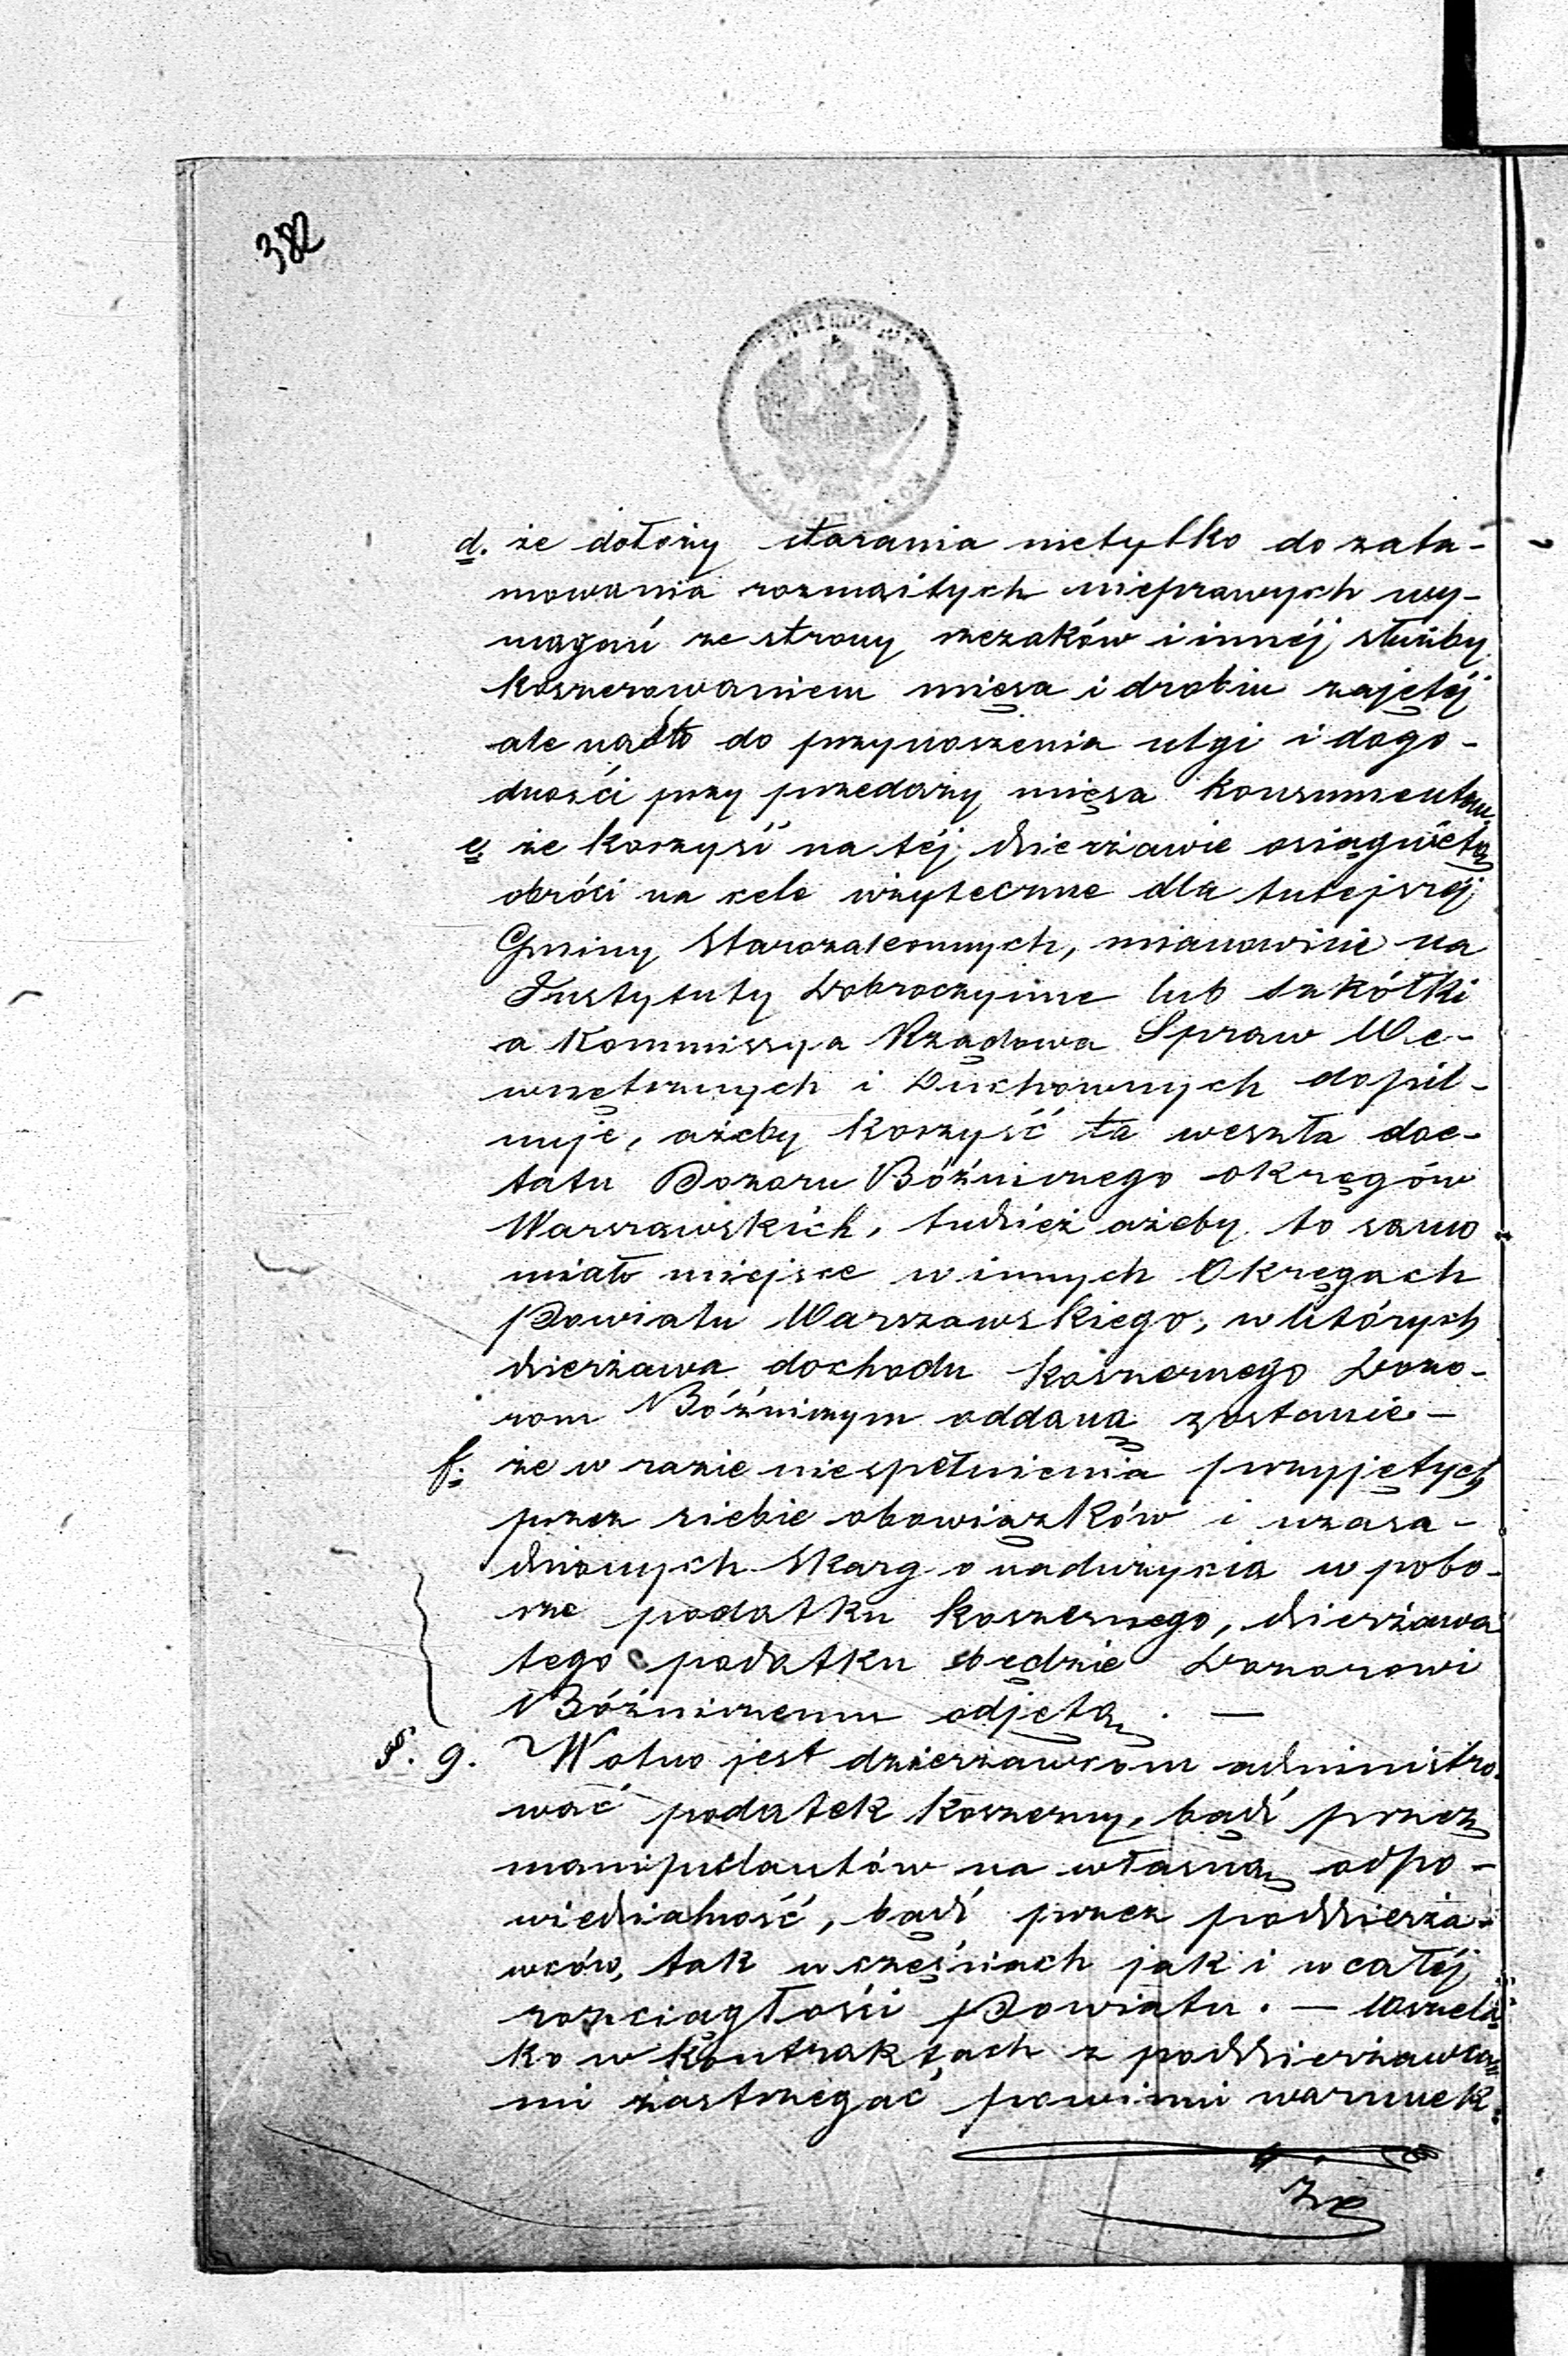 382
d. że dołoży starania nietylko do zata-
mowania rozmaitych nieprawych wy-
magań ze strony rzezaków i innéj służby
koszerowaniem mięsa i drobiu zajętéj
ale nadto do przynoszenia ulgi i dogo-
dności przy przedaży mięsa konsumentom.
e. że korzyść na téj dzierżawie osiągniętą
obróci na cele użyteczne dla tutejszéj
Gminy Starozakonnych, mianowicie na
Instytuty Dobroczynne lub szkółki
a Kommissya Rządowa Spraw We-
wnętrznych i Duchownych dopil-
nuje, ażeby korzyść ta weszła do e-
tatu Dozoru Bóźniczego okręgów
Warszawskich, tudzież ażeby to samo
miało miejsce w innych Okręgach
Powiatu Warszawskiego, w których
dzierżawa dochodu koszernego Dozo-
rom Bóźniczym oddaną zostanie –
f. że w razie niespełnienia przyjętych
przez siebie obowiązków i uzasa-
dnionych skarg o nadużycia w pobo-
rze podatku koszernego, dzierżawa
tego podatku będzie Dozorowi
Bóźniczemu odjętą. —
§. 9. Wolno jest dzierżawcom administro-
wać podatek koszerny, bądź przez
manipulantów na własną odpo-
wiedzialność, bądź przez poddzierża-
wców, tak w częściach jak i w całéj
rozciągłości Powiatu. — Wszela-
ko w kontraktach z poddzierżawca-
mi zastrzegać powinni warunek.